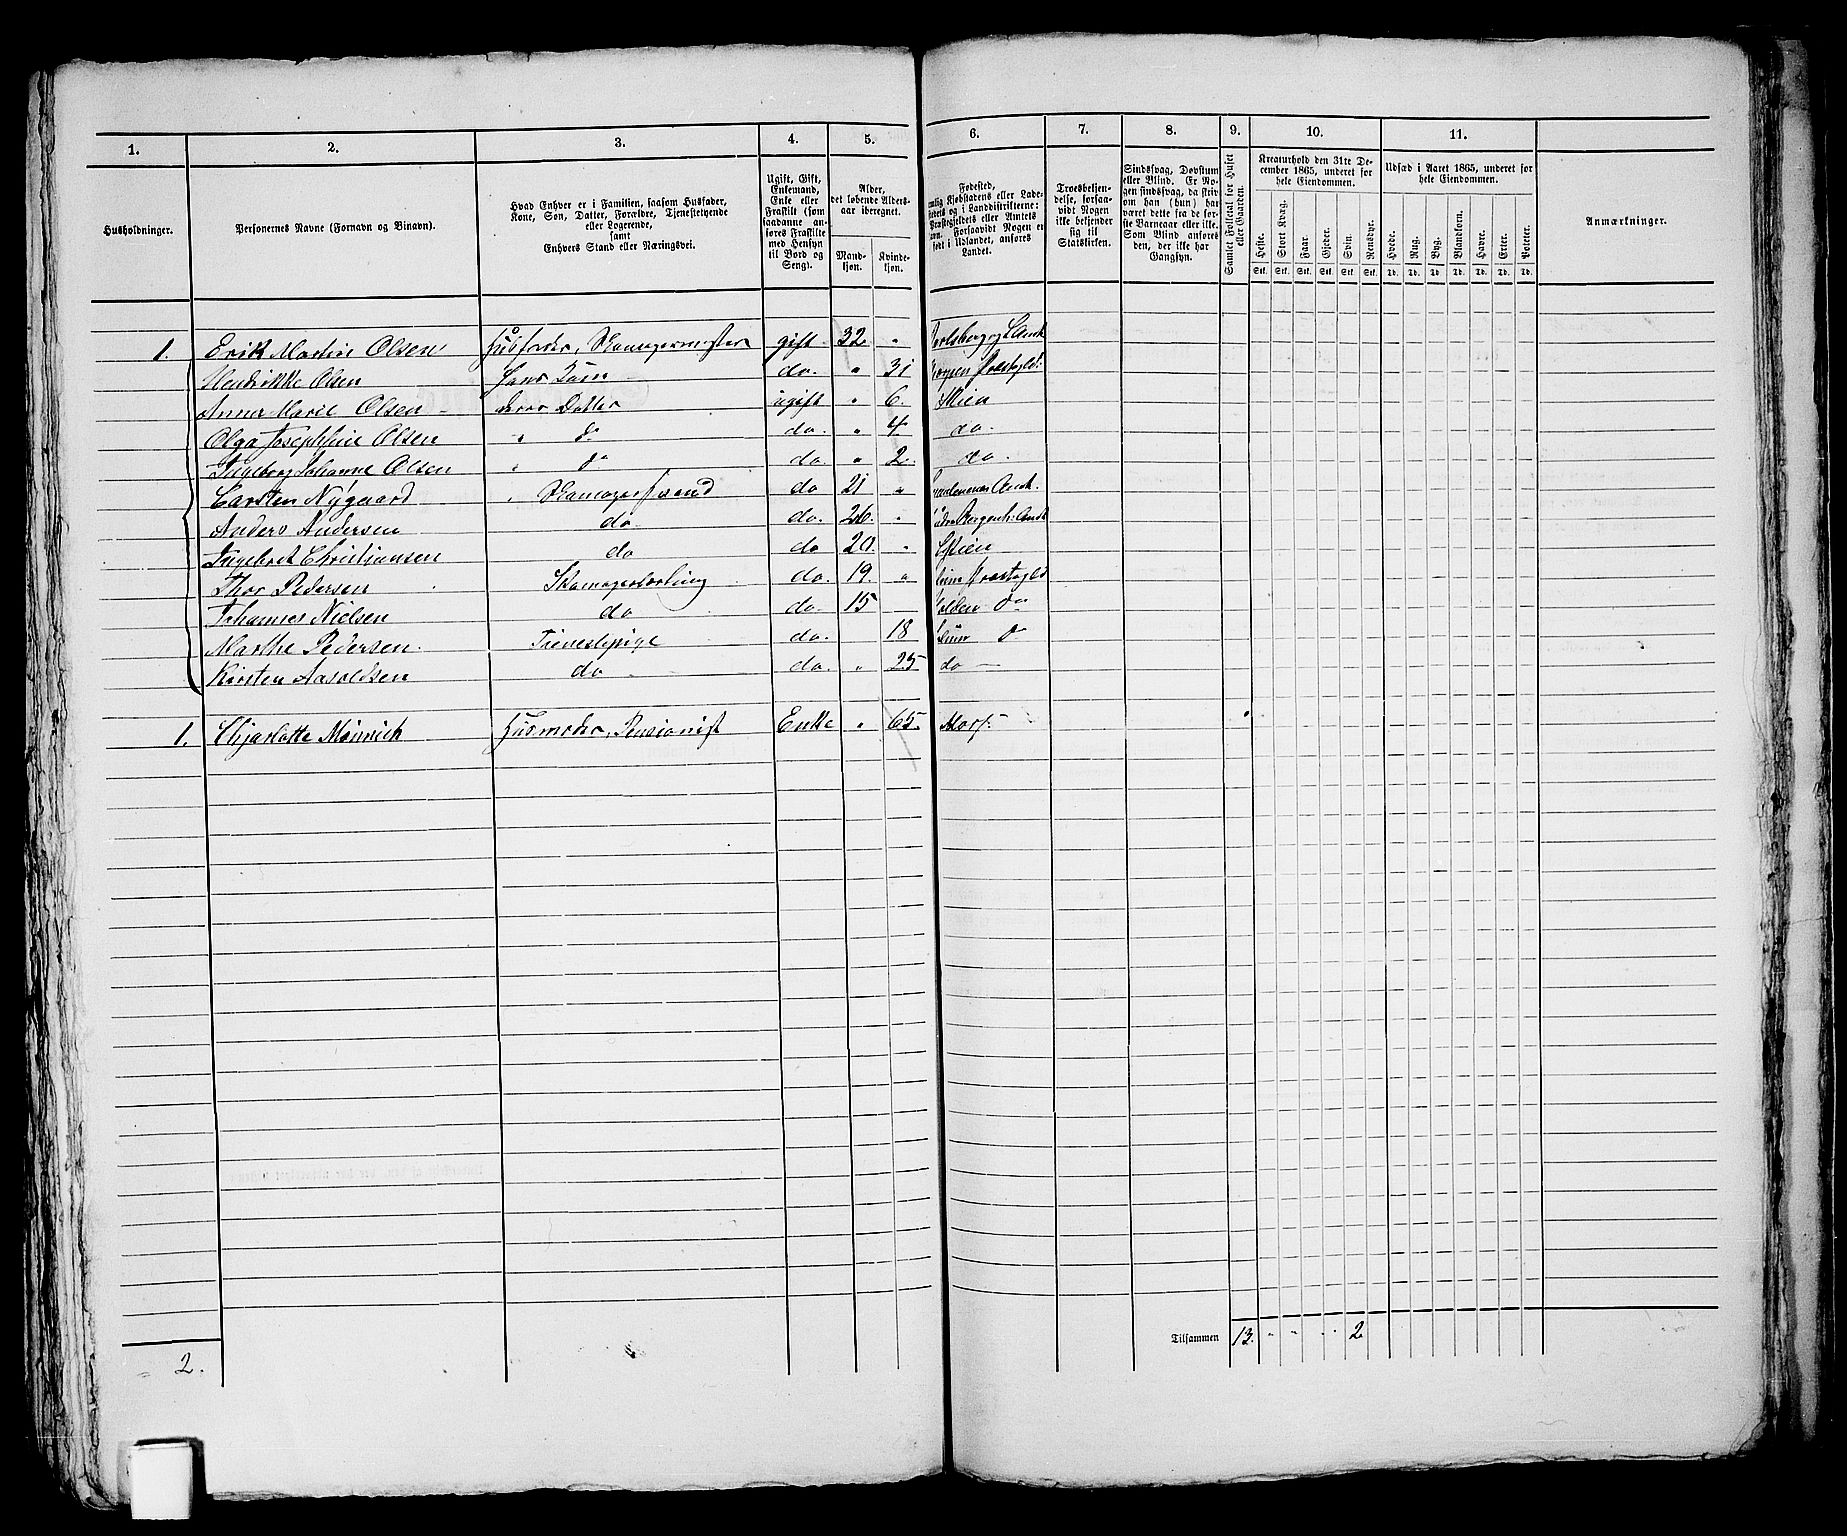 1. 2. 3. 4. 5. 6. 7. 8. 9. 10. 11.
Husholdninger.
Personernes Navne (Fornavn og Binavn).
Hvad Enhver er i Familien, saasom Husfader,
Kone, Søn, Datter, Forældre, Tjenestetyende
eller Logerende,
samt
Enhvers Stand eller Næringsvei.
Ugift, Gift,
Enkemand,
Enke eller
Fraskilt (som
saadanne an-
føres Fraskilte
med Hensyn
til Bord og
Seng).
Alder,
det løbende Alders-
aar iberegnet.
Mand-
kjøn.
Kvinde-
kjøn.
Fødested,
Kjøbstadens eller Lade-
stedets og i Landdistrikterne:
Præstegjeldets eller Amtets
Navn. Forsaavidt Nogen er
født i Udlandet, anføres
Landet.
Troesbekjen-
delse, forsaa-
vidt Nogen
ikke bekjender
sig til
Statskirken.
Sindssvag, Døvstum
eller Blind. Er No-
gen sindssvag, da skriv
om han (hun) har
været dette fra de før-
ste Barneaar eller ikke.
Som Blind anføres
den, der ikke har
Gangsyn.
Samlet Folketal for Huset
eller Gaarden.
Kreaturhold den 31te De-
cember 1865, underet for
hele Eiendommen.
Heste. Stort Kvæg. Faar. Gjeder. Svin. Rensdyr.
Stk. Stk. Stk. Stk. Stk. Stk.
Udsæd i Aaret 1865, underet for
hele Eiendommen.
Hvede. Rug. Byg. Blandkorn. Havre. Erter. Poteter.
Td. Td. Td. Td. Td. Td. Td.
Anmærkninger.
1. Erik Martin Olsen Husfader, Skomagermester gift 32 "
Hendrikke Olsen Hans Kone do. " 31 Præstegld:
Anne Marie Olsen deres Datter ugift " 6. Skien
Olga Josephine Olsen " do do. " 4 do.
Ingeborg Johanne Olsen " do do. " 2. do.
Carsten Nygaard " Skomagersvend do 21 " Amt.
Anders Andersen do. do. 26. " Amt
Ingebret Christiansen do do 20. " Skien
Thor Pedersen Skomagerlærling do. 19. " Præstegld
Johannes Nielsen do do. 15 do
Marthe Pedersen. Tienestepige do. 18 do
Kirsten Aasoldsen do do. " 25 do
1. Chjarlotte Münnich Husmoder, Pensionist Enke " 65.
Tilsammen 13. " " " " 2
2.